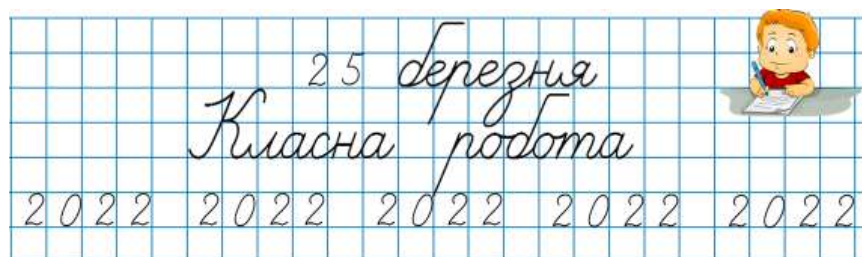 25 березня
Класна робота
2022 2022 2022 2022 2022